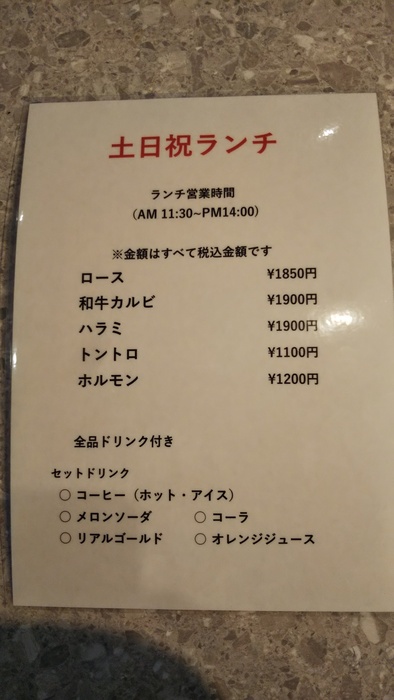 土日祝ランチ
ランチ営業時間
(AM 11:30~PM14:00)
※金額はすべて税込金額です
ロース ¥1850円
和牛カルビ ¥1900円
ハラミ ¥1900円
トントロ ¥1100円
ホルモン ¥1200円
全品ドリンク付き
セットドリンク
○ コーヒー（ホット・アイス）
○ メロンソーダ ○ コーラ
○ リアルゴールド ○ オレンジジュース